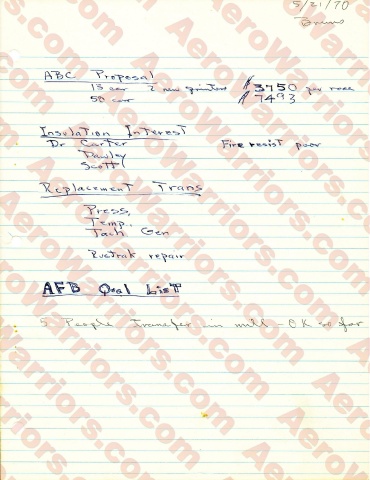 5/21/70
ABC Proposal
13 car 2 new printers $3750 per race
50 car $7493
Insulation Interest
Dr Carter Fire resist poor
Dawley
Scott
Replacement Trans
Press,
Temp.,
Tach Gen
Rustrak repair
AFB Qual List
5 People transfer in mill - OK so far
AeroWarriors.com